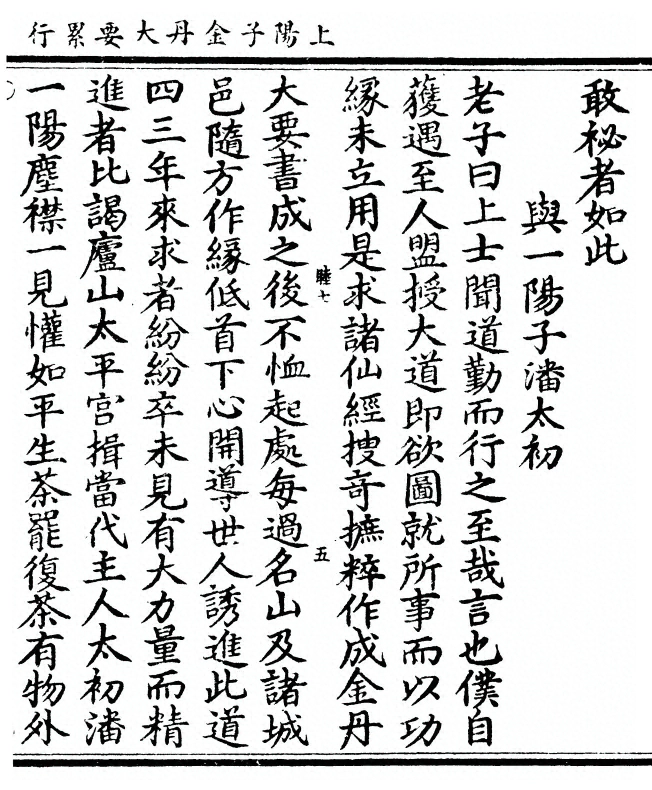 上陽子金丹大要累行
敢祕者如此
與一陽子潘太初
老子曰上士聞道勤而行之至哉言也僕自
獲遇至人盟授大道即欲圖就所事而以功
緣未立用是求諸仙經搜竒摭粹作成金丹
大要書成之後不恤起處每過名山及諸城
邑隨方作緣低首下心開導世人誘進此道
四三年來求者紛紛卒未見有大力量而精
進者比謁廬山太平宫揖當代主人太初潘
一陽塵襟一見懽如平生茶罷復茶有物外
睦七
五